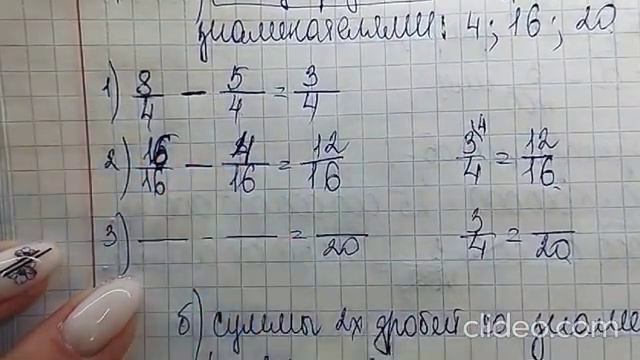 знаменателями: 4; 16; 20
1) 8/4 - 5/4 = 3/4
2) 16/16 - 4/16 = 12/16 3/4 = 12/16
3) — - — = /20 3/4 = /20
б) суммы 2х дробей
clideo.com